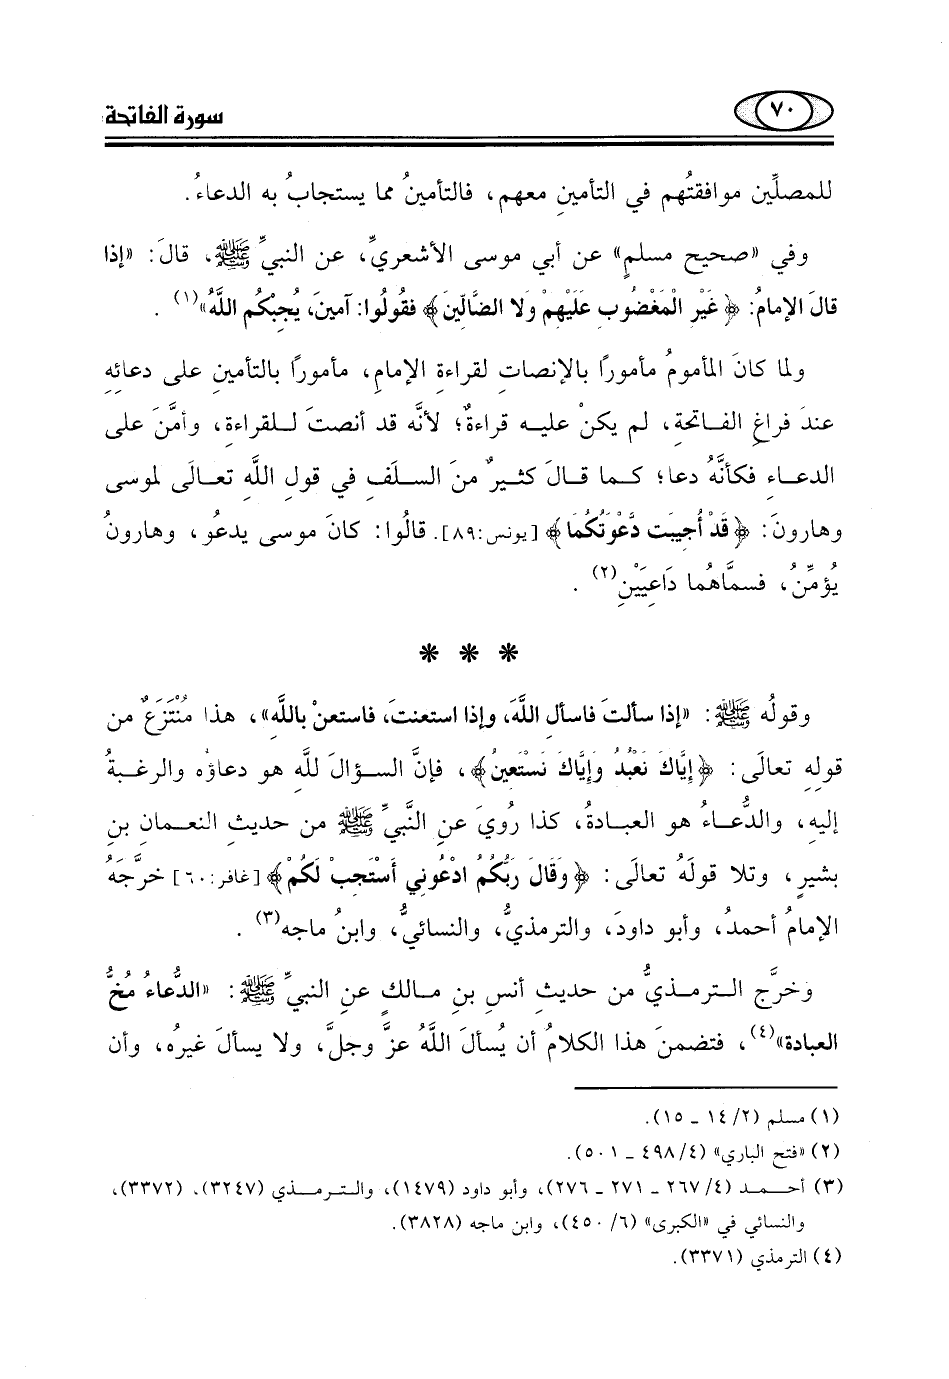 ٧٠
سورة الفاتحة
للمصلِّين موافقتُهم في التأمينِ معهم، فالتأمينُ مما يستجابُ به الدعاءُ.
وفي «صحيح مسلمٍ» عن أبي موسى الأشعريِّ، عن النبيِّ ﷺ، قالَ: «إذا
قالَ الإمامُ: ﴿غَيْرِ الْمَغْضُوبِ عَلَيْهِمْ وَلا الضَّالِّينَ﴾ فقُولُوا: آمينَ، يُجبْكُم اللَّهُ»(١) .
ولما كانَ المأمومُ مأمورًا بالإنصاتِ لقراءةِ الإمامِ، مأمورًا بالتأمينِ على دعائِهِ
عندَ فراغِ الفـاتحةِ، لم يكنْ عليـه قراءةٌ؛ لأنَّه قد أنصتَ لـلقراءةِ، وأمَّنَ على
الدعـاءِ فكأنَّهُ دعا؛ كـما قـالَ كثيـرٌ منَ السـلَفِ في قولِ اللَّهِ تعـالَى لموسى
وهارونَ: ﴿قَدْ أُجِيبَت دَّعْوَتُكُمَا﴾ [يونس:٨٩]. قالُوا: كانَ موسى يدعُو، وهارونُ
يُؤمِّنُ، فسمَّاهُما دَاعِيَيْنِ(٢) .
* * *
وقولُه ﷺ: «إذا سألتَ فاسألِ اللَّهَ، وإذا استعنتَ، فاستعنْ باللَّهِ»، هذا مُنْتَزَعٌ من
قولِهِ تعالَى: ﴿إِيَّاكَ نَعْبُدُ وَإِيَّاكَ نَسْتَعِينُ﴾، فإنَّ السـؤالَ للَّهِ هو دعاؤه والرغبـةُ
إليهِ، والدُّعـاءُ هو العبـادةُ، كذا رُويَ عنِ النَّبيِّ ﷺ من حديثِ النعـمانِ بنِ
بشيرٍ، وتلا قولَهُ تعالَى: ﴿وَقَالَ رَبُّكُمُ ادْعُونِي أَسْتَجِبْ لَكُمْ﴾ [غافر:٦٠] خرَّجَهُ
الإمامُ أحمدُ، وأبو داودَ، والترمذيُّ، والنسائيُّ، وابنُ ماجه(٣) .
وخرَّج التـرمـذيُّ من حديثِ أنسِ بنِ مـالكٍ عن النبيِّ ﷺ: «الدُّعاءُ مُخُّ
العبادة»(٤)، فتضمنَ هذا الكلامُ أن يُسألَ اللَّهُ عزَّ وجلَّ، ولا يسألَ غيرُه، وأن
(١) مسلم (٢/ ١٤ ـ ١٥).
(٢) «فتح الباري» (٤/ ٤٩٨ ـ ٥٠١).
(٣) أحـمـد (٤/ ٢٦٧ ـ ٢٧١ ـ ٢٧٦)، وأبو داود (١٤٧٩)، والتـرمـذي (٣٢٤٧)، (٣٣٧٢)،
والنسائي في «الكبرى» (٦/ ٤٥٠)، وابن ماجه (٣٨٢٨).
(٤) الترمذي (٣٣٧١).